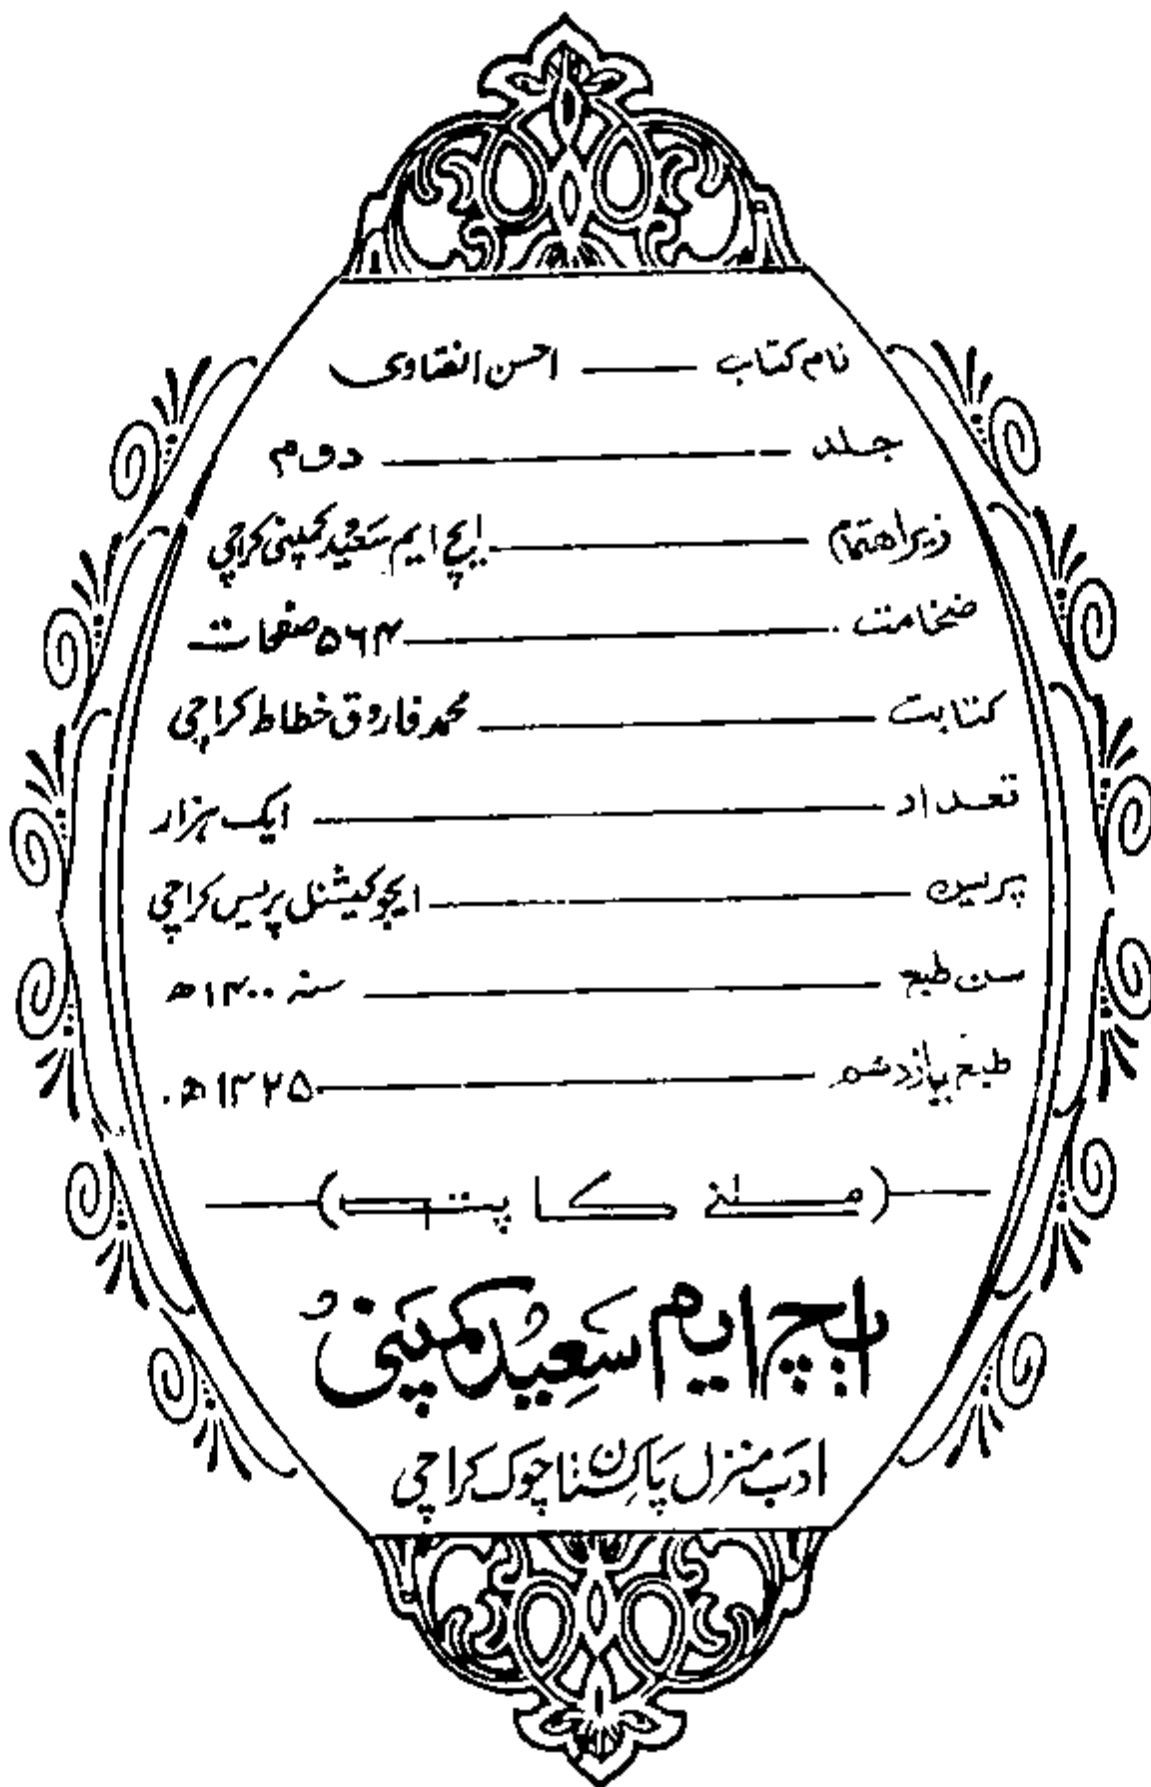 نام کتاب ـــــ احسن الفتاوی
جلد ـــــ دوم
زیر اهتمام ـــــ ایچ ایم سعید کمپنی کراچی
ضخامت ـــــ ۵۶۴ صفحات
کتابت ـــــ محمد فاروق خطاط کراچی
تعداد ـــــ ایک ہزار
پریس ـــــ ایجوکیشنل پریس کراچی
سن طبع ـــــ سنہ ۱۴۰۰ھ
طبع یازدهم ـــــ ۱۴۲۵ھ
(ملنے کا پتہ)
ایچ ایم سعید کمپنی
ادب منزل پاکستان چوک کراچی